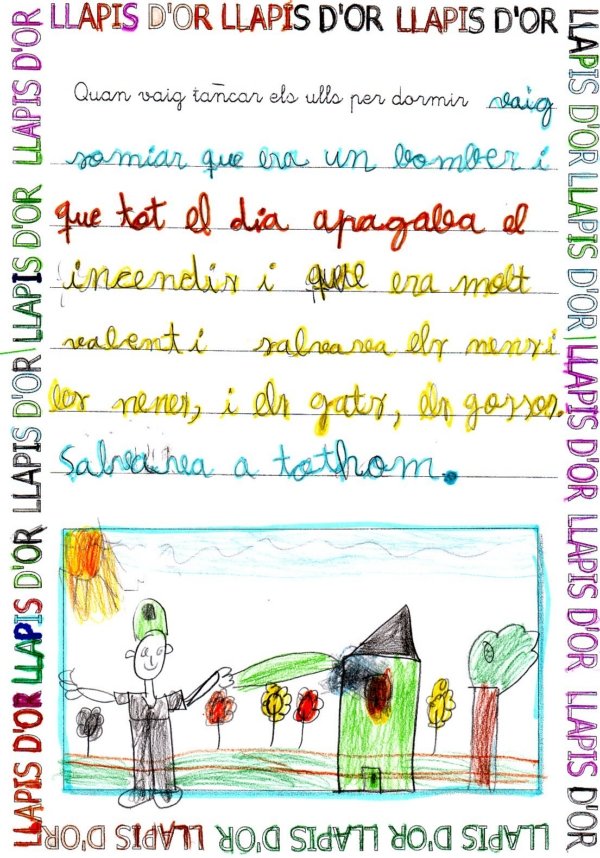 LLAPIS D'OR LLAPIS D'OR LLAPIS D'OR
Quan vaig tancar els ulls per dormir vaig
somiar que era un bomber i
que tot el dia apagaba el
incendis i que era molt
valent i salvava els nens i
les nenes, i els gats, els gossos.
Salvava a tothom.
LLAPIS D'OR LLAPIS D'OR LLAPIS D'OR LLAPIS D'OR LLAPIS D'OR
LLAPIS D'OR LLAPIS D'OR LLAPIS D'OR LLAPIS D'OR LLAPIS D'OR
LLAPIS D'OR LLAPIS D'OR LLAPIS D'OR